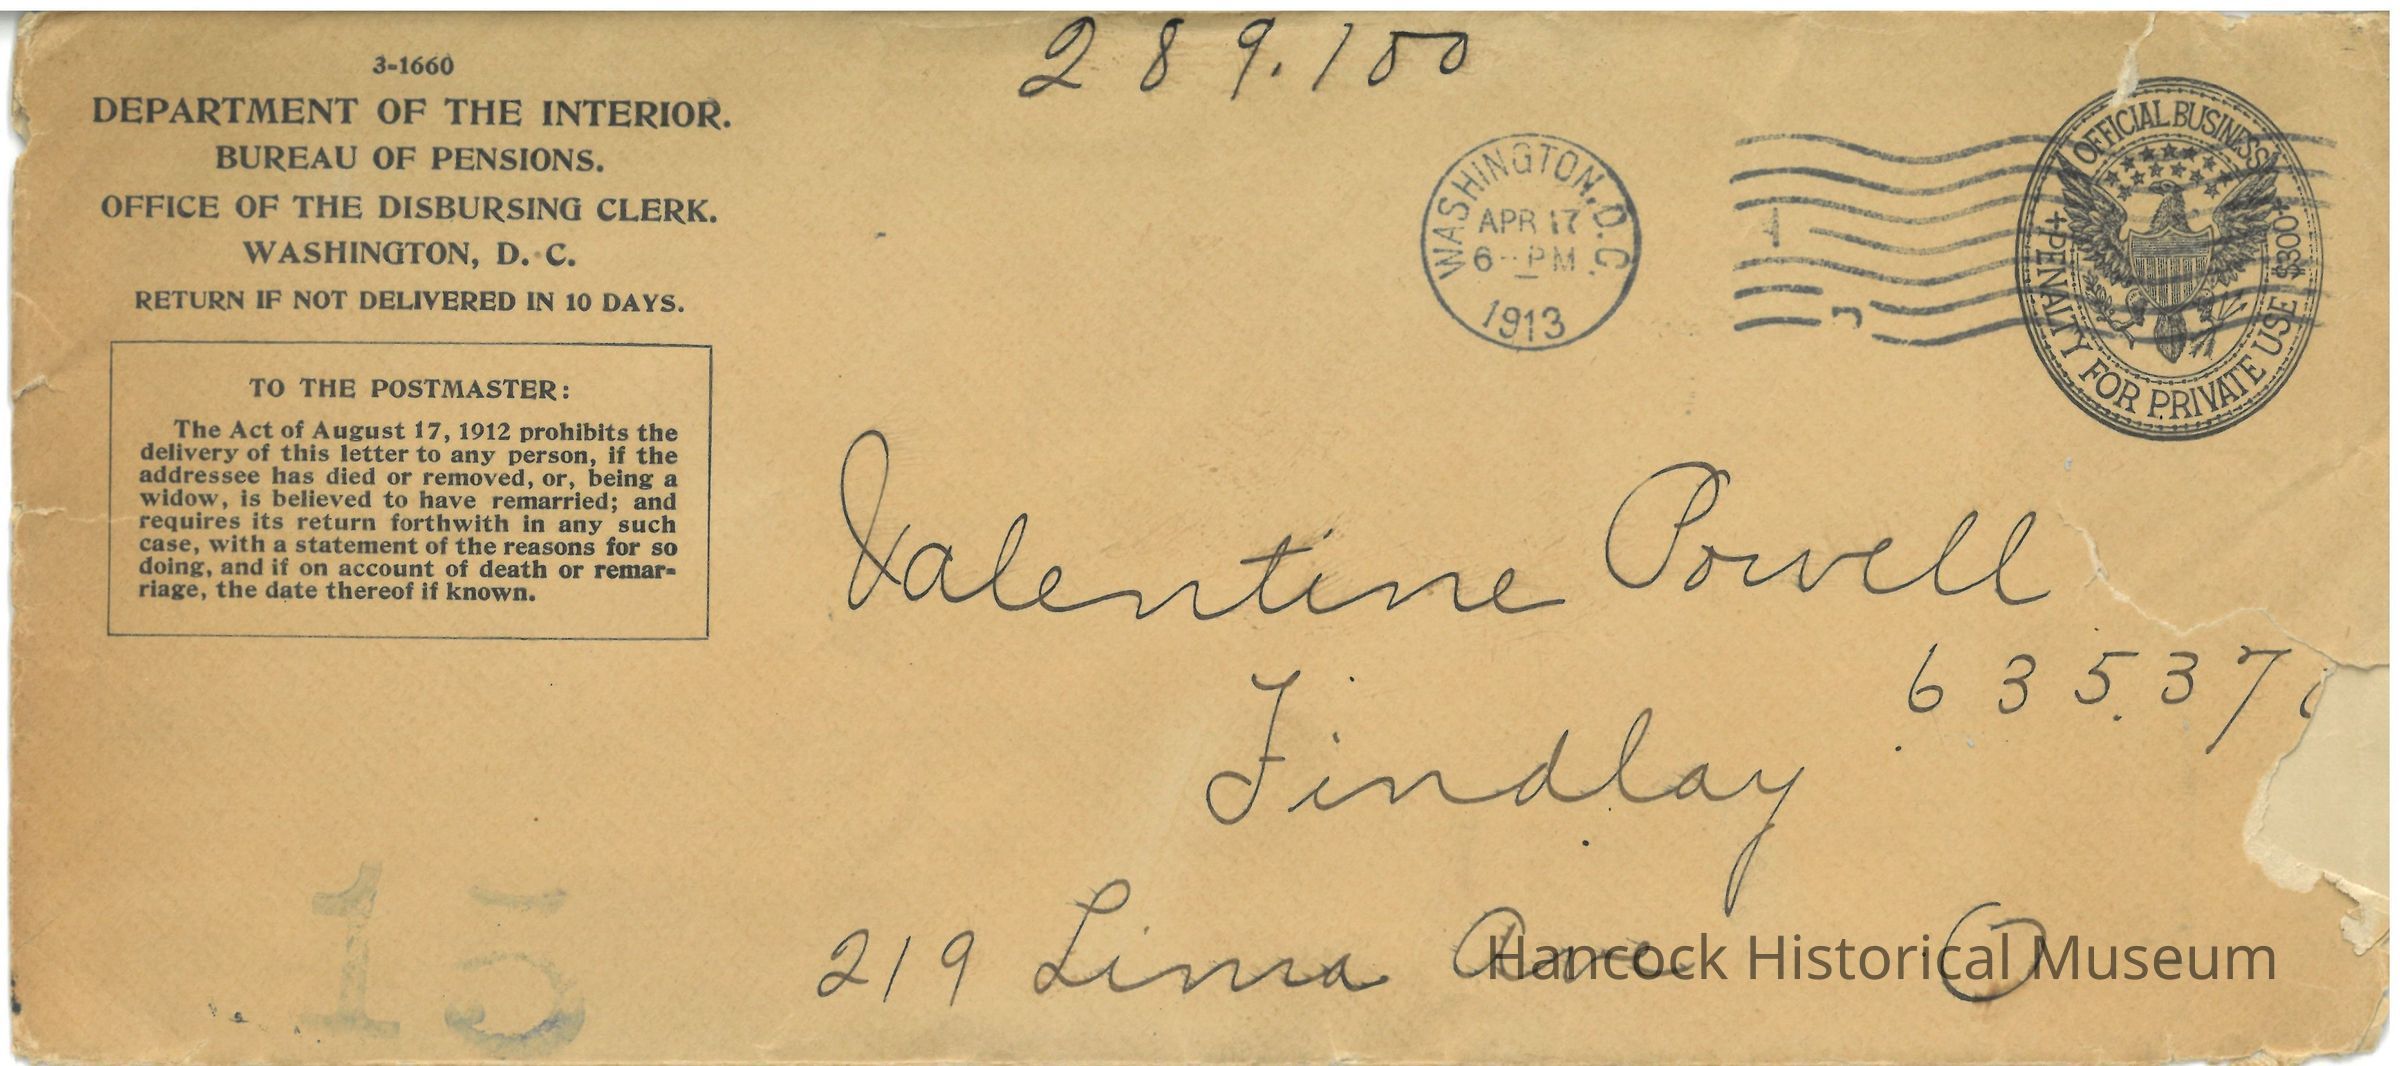 3-1660
DEPARTMENT OF THE INTERIOR.
BUREAU OF PENSIONS.
OFFICE OF THE DISBURSING CLERK.
WASHINGTON, D. C.
RETURN IF NOT DELIVERED IN 10 DAYS.
TO THE POSTMASTER:
The Act of August 17, 1912 prohibits the
delivery of this letter to any person, if the
addressee has died or removed, or, being a
widow, is believed to have remarried; and
requires its return forthwith in any such
case, with a statement of the reasons for so
doing, and if on account of death or remar-
riage, the date thereof if known.
289.100
WASHINGTON, D.C.
APR 17
6-PM
1913
OFFICIAL BUSINESS
PENALTY FOR PRIVATE USE $300
Valentine Powell
63537
Findlay
219 Lima Ave O
15
Hancock Historical Museum